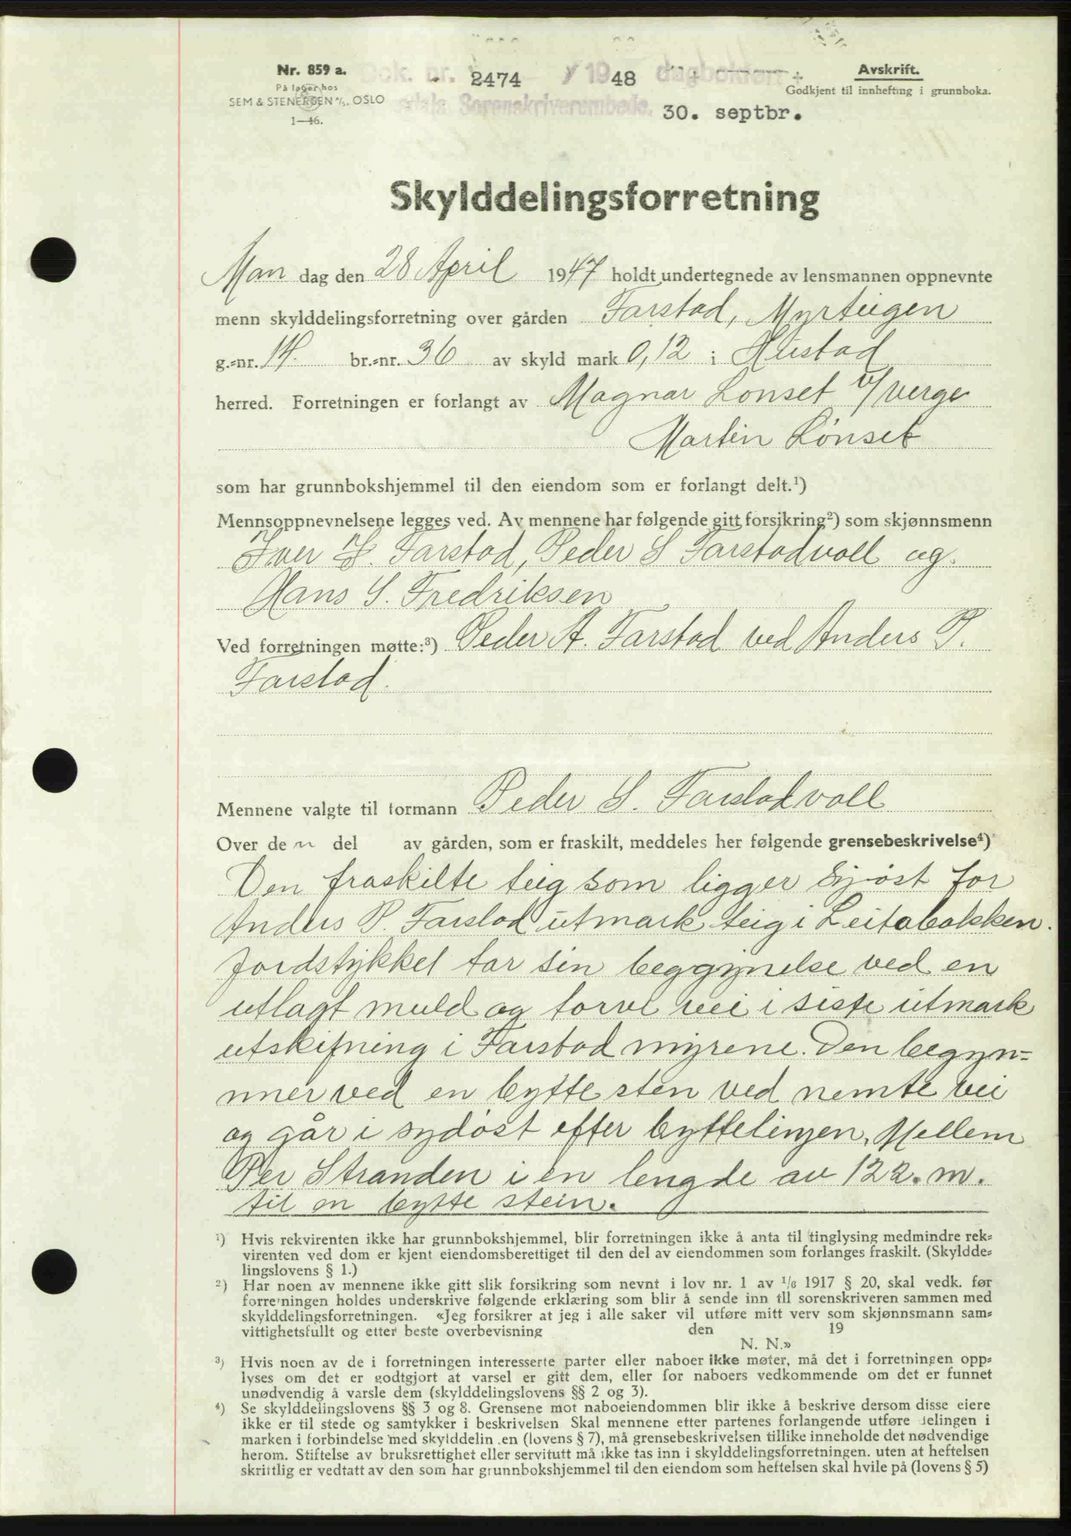 Nr. 859 a.
På lager hos
SEM & STENERSEN A/S, OSLO
1—46.
Dok. nr. 2474 / 1948 dagboken
Sorenskriverembede.
30. septbr.
Avskrift.
Godkjent til innhefting i grunnboka.
Skylddelingsforretning
Man dag den 28 April 1947 holdt undertegnede av lensmannen oppnevnte
menn skylddelingsforretning over gården Farstad, Myrteigen
g.-nr. 14. br.-nr. 36 av skyld mark 0,12 i Hustad
herred. Forretningen er forlangt av Magnar Lonset v/verge
Martin Lønset
som har grunnbokshjemmel til den eiendom som er forlangt delt.¹)
Mennsoppnevnelsene legges ved. Av mennene har følgende gitt forsikring²) som skjønnsmenn
Iver I. Farstad, Peder S Farstadvoll og
Hans S. Fredriksen
Ved forretningen møtte:³) Peder A. Farstad ved Anders P.
Farstad.
Mennene valgte til formann Peder S. Farstadvoll
Over den del av gården, som er fraskilt, meddeles her følgende grensebeskrivelse⁴)
Den fraskilte teig som ligger Syøst for
Anders P. Farstad utmark teig i Leitabakken.
Jordstykket tar sin beggynelse ved en
utlagt muld og torve vei i siste utmark
utskifning i Farstad myrene. Den begyn=
nner ved en bytte sten ved nemte vei
og går i sydøst efter byttelinjen, Mellem
Per Stranden i en lengde av 122. m.
til en bytte stein.
¹) Hvis rekvirenten ikke har grunnbokshjemmel, blir forretningen ikke å anta til tinglysing medmindre rek-
virenten ved dom er kjent eiendomsberettiget til den del av eiendommen som forlanges fraskilt. (Skyldde-
lingslovens § 1.)
²) Har noen av mennene ikke gitt slik forsikring som nevnt i lov nr. 1 av 1/6 1917 § 20, skal vedk. før
forretningen holdes underskrive følgende erklæring som blir å sende inn til sorenskriveren sammen med
skylddelingsforretningen. «Jeg forsikrer at jeg i alle saker vil utføre mitt verv som skjønnsmann sam-
vittighetsfullt og etter beste overbevisning den 19
N. N.»
³) Hvis noen av de i forretningen interesserte parter eller naboer ikke møter, må det i forretningen opp-
lyses om det er godtgjort at varsel er gitt dem, eller for naboers vedkommende om det er funnet
unødvendig å varsle dem (skylddelingslovens §§ 2 og 3).
⁴) Se skylddelingslovens §§ 3 og 8. Grensene mot naboeiendommen blir ikke å beskrive dersom disse eiere
ikke er til stede og samtykker i beskrivelsen Skal mennene etter partenes forlangende utføre delingen i
marken i forbindelse med skylddelin en (lovens § 7), må grensebeskrivelsen tillike inneholde det nødvendige
herom. Stiftelse av bruksrettighet eller servitutt må ikke tas inn i skylddelingsforretningen. uten at heftelsen
skriftlig er vedtatt av den som har grunnbokshjemmel til den eiendom som heftelsen skal hvile på (lovens § 5)